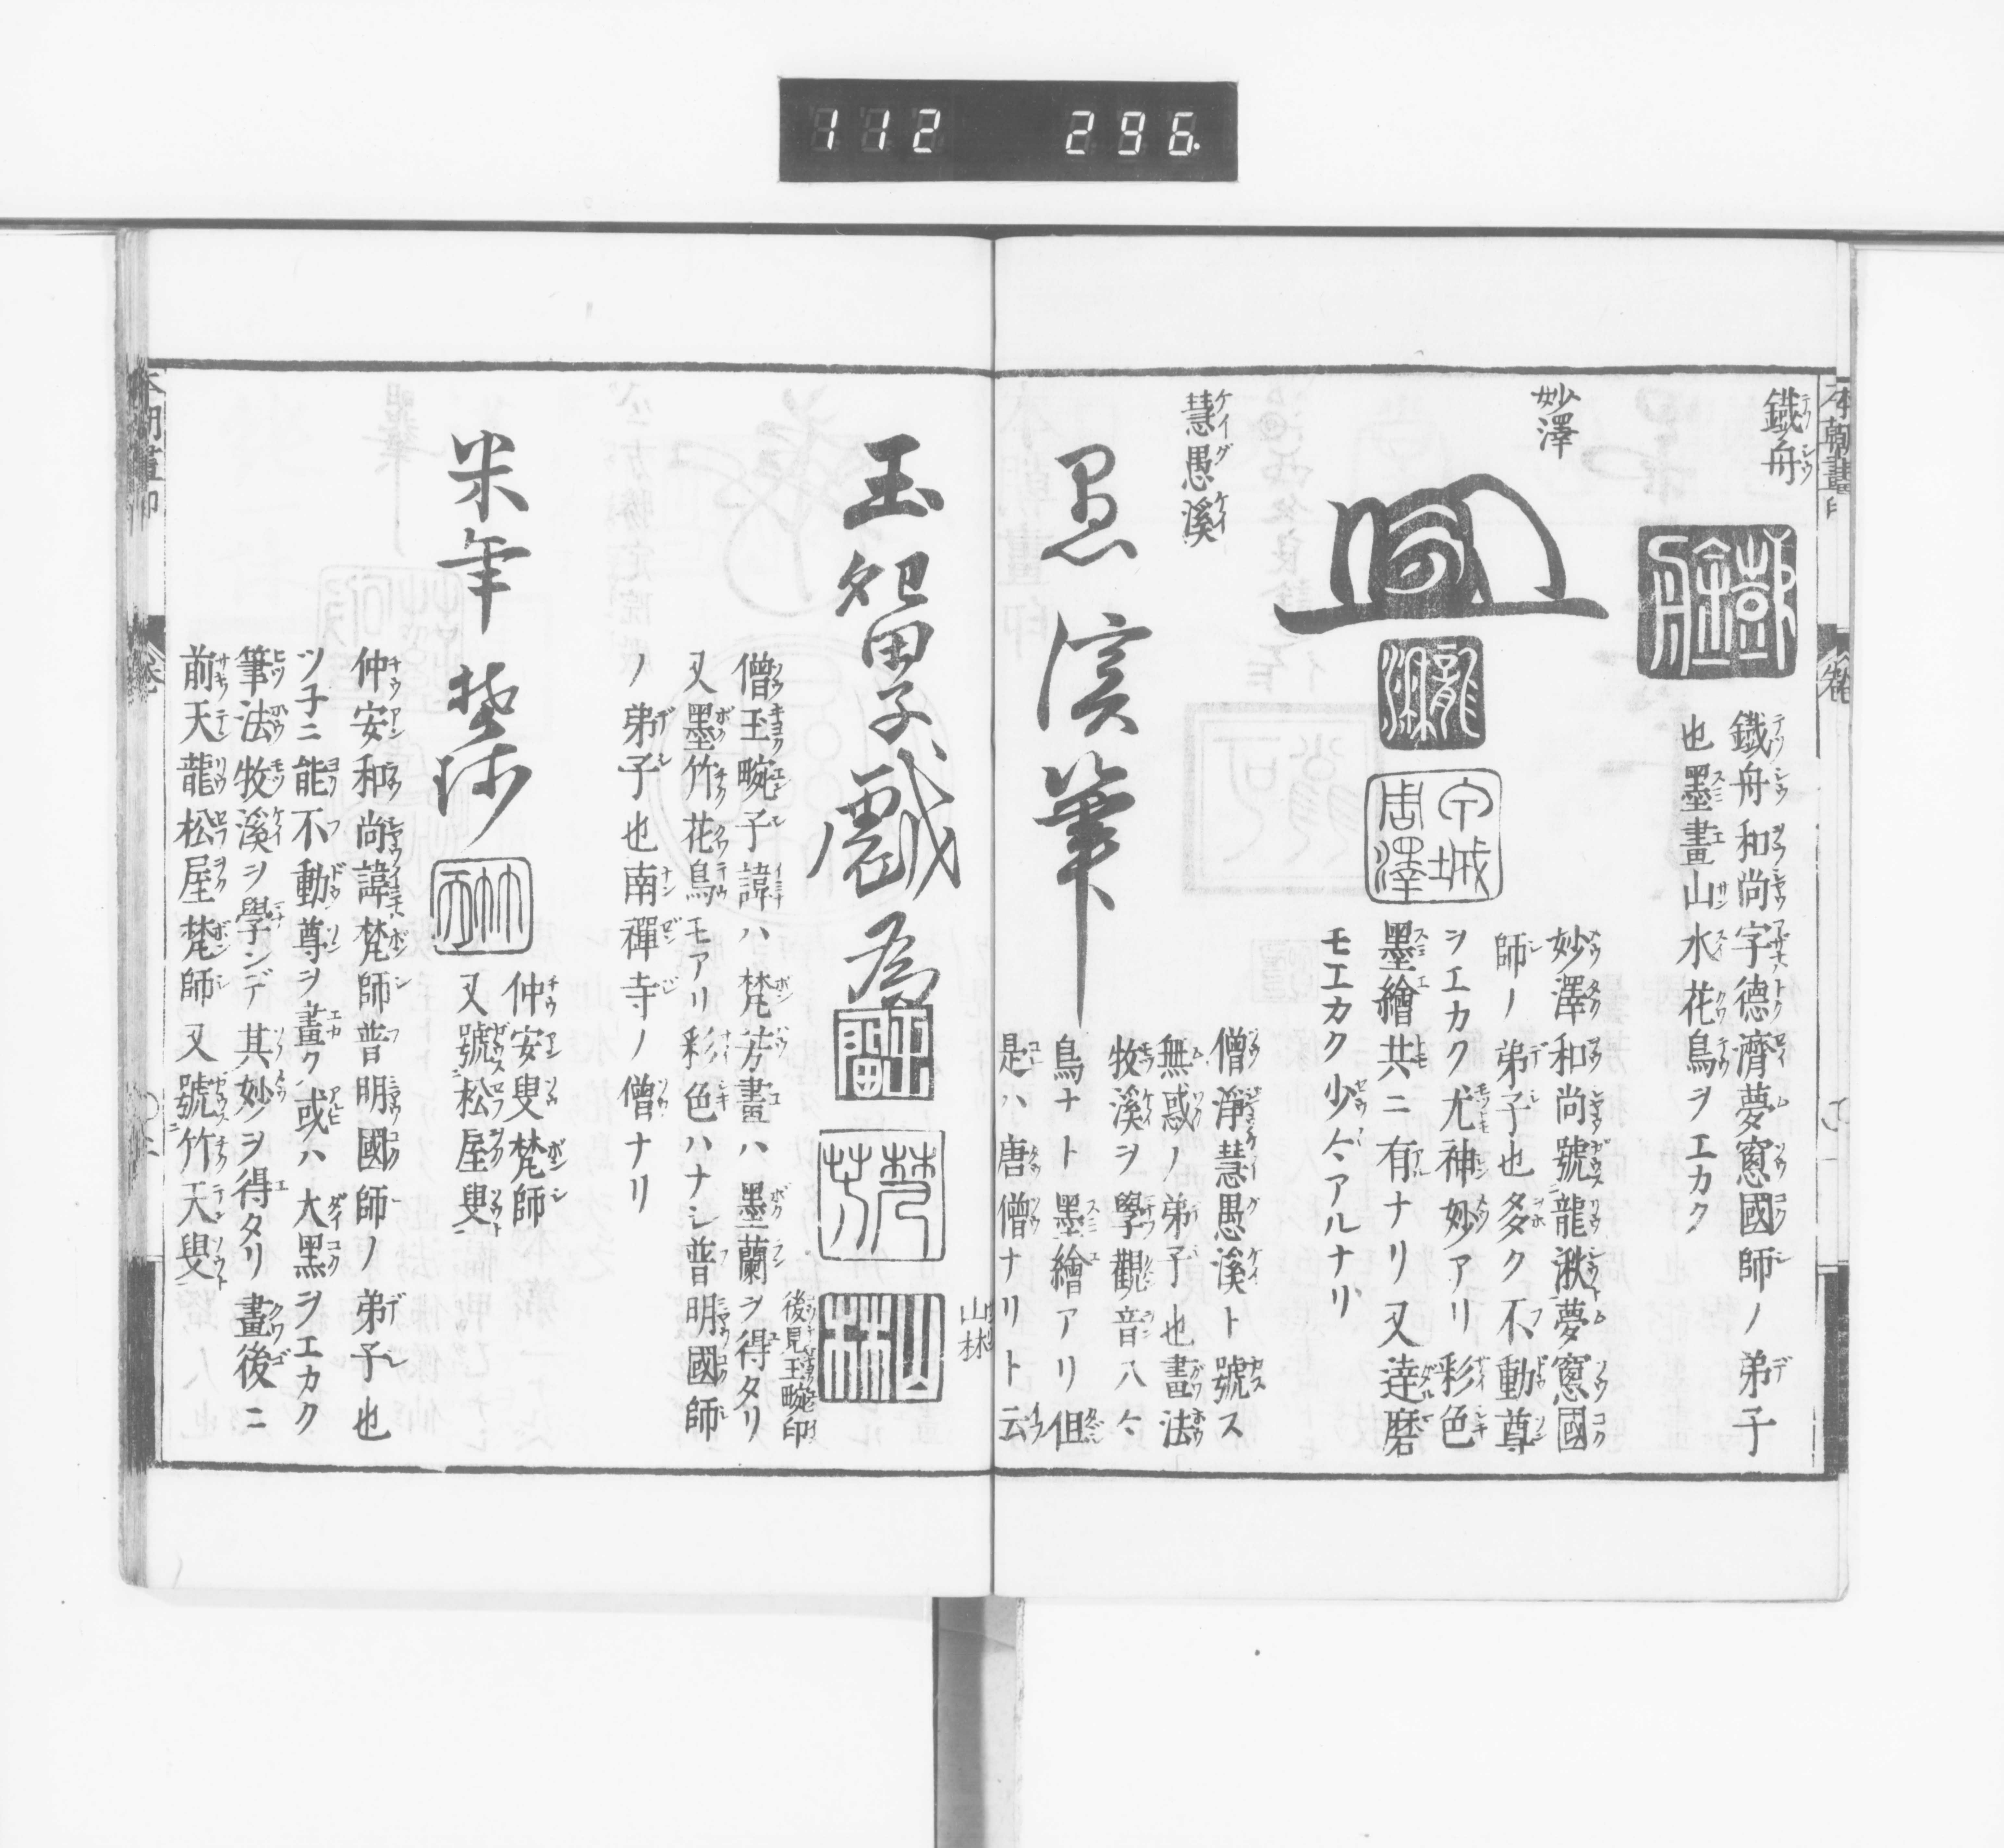 112 296.
本朝畫印
鐵舟
鐵舟和尚字德濟夢窓國師ノ弟子
也墨畫山水花鳥ヲエカク
妙澤
龍湫
周澤
妙澤和尚號龍湫夢窓國
師ノ弟子也多ク不動尊
ヲエカク尤神妙アリ彩色
墨繪共ニ有ナリ又達磨
モエカク少々アルナリ
慧愚溪
愚溪筆
僧淨慧愚溪ト號ス
無惑ノ弟子也畫法
牧溪ヲ學觀音八々
鳥ナト墨繪アリ但
是ハ唐僧ナリト云
山林
玉畹子戲為
梵芳
後見玉畹印
僧玉畹子諱ハ梵芳畫ハ墨蘭ヲ得タリ
又墨竹花鳥モアリ彩色ハナシ普明國師
ノ弟子也南禪寺ノ僧ナリ
米年梵師
仲安叟梵師
又號松屋叟
仲安和尚諱梵師普明國師ノ弟子也
ツ子ニ能不動尊ヲ畫ク或ハ大黑ヲエカク
筆法牧溪ヲ學ンデ其妙ヲ得タリ畫後ニ
前天龍松屋梵師又號竹天叟
本朝畫印